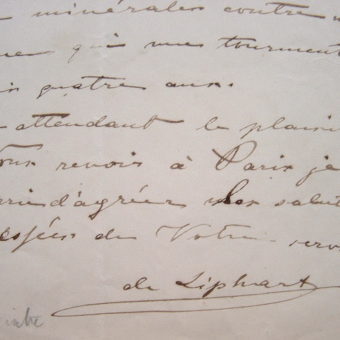 minérales contre
que qui me tourmente
is quatre ans.
attendant le plaisi
vous revois à Paris je
prie d'agréer les salut
de Votre serv
de Liphart